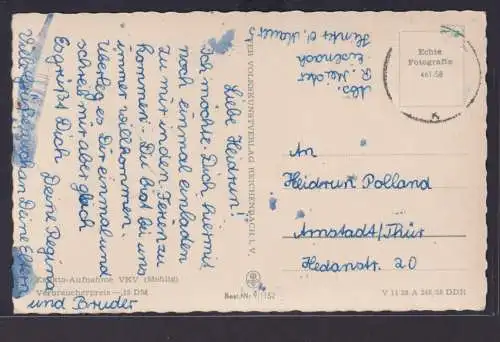 Liebe Heidrun!
Ich möchte Dich hiermit
noch einmal einladen
zu mir in den Ferien zu
kommen. Du bist bei uns
immer willkommen.
Überleg es Dir einmal und
schreib mir aber gleich
Es grüßt Dich
Deine Regina
Viele Grüße auch an Deine Eltern
und Bruder
Abs.
R.
Eisenach
VOLKSKUNSTVERLAG REICHENBACH I. V.
Echte
Fotografie
461/58
An
Heidrun Polland
Arnstadt/Thür
Hedanstr. 20
-Aufnahme VKV (Meßlig)
Verbraucherpreis — 15 DM
Best.-Nr. 1152
V 11 28 A 248/58 DDR